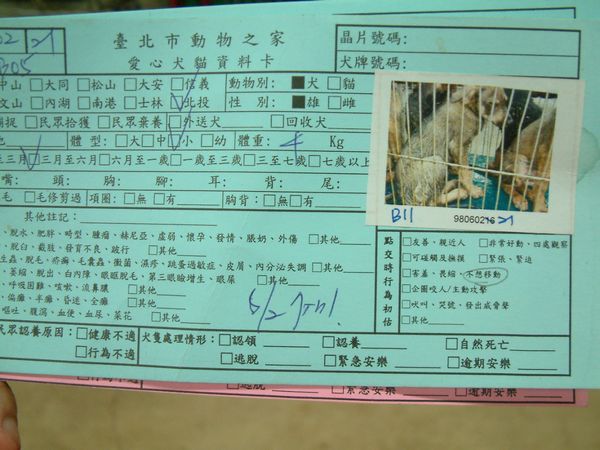 02 21
B05
臺北市動物之家
愛心犬貓資料卡
晶片號碼:
犬牌號碼:
中山 □大同 □松山 □大安 □信義
動物別: ■犬 □貓
文山 □內湖 □南港 □士林 □北投
性 別: ■雄 □雌
捕捉 □民眾拾獲 □民眾棄養 □外送犬 □回收犬
體 型: □大 □中 □小 □幼 體重: 4 Kg
至三月 □三月至六月 □六月至一歲 □一歲至三歲 □三至七歲 □七歲以上
嘴: 頭: 胸: 腳: 耳: 背: 尾:
毛 □毛修剪過 項圈: □無 □有 胸背: □無 □有
其他註記:
、脫水、肥胖、畸型、腫瘤、赫尼亞、虛弱、懷孕、發情、脹奶、外傷 □其他
、脫臼、截肢、發育不良、跛行 □其他
生蟲、脫毛、疥癬、毛囊蟲、黴菌、濕疹、跳蚤過敏症、皮屑、內分泌失調 □其他
、萎縮、脫出、白內障、眼眶脫毛、第三眼瞼增生、眼屎 □其他
、呼吸困難、咳嗽、流鼻膿 □其他
、偏癱、半癱、昏迷、全癱 □其他
嘔吐、腹瀉、血便、血尿、菜花 □其他
6/2
B11 98060216 21
點交時行為初估
□友善、親近人 □非常好動、四處觀察
□可碰觸及撫摸 □緊張、緊迫
□害羞、畏縮、不想移動
□企圖咬人/主動攻擊
□吠叫、哭號、發出威脅聲
□其他
民眾認養原因: □健康不適
□行為不適
犬隻處理情形: □認領 □認養 □自然死亡
□逃脫 □緊急安樂 □逾期安樂
□行為不適 □逃脫 □緊急安樂 □逾期安樂